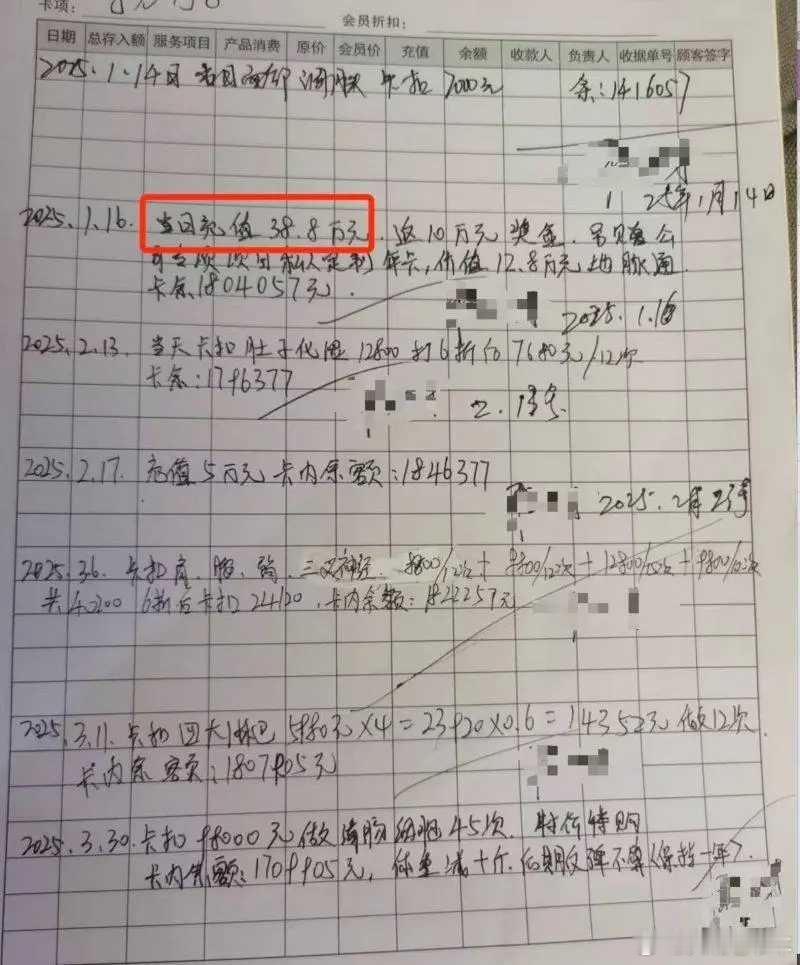 卡项:
会员折扣:
日期 总存入额 服务项目 产品消费 原价 会员价 充值 余额 收款人 负责人 收据单号 顾客签字
2025.1.14日 卡扣 7000元 余:1416057
25年1月14日
2025.1.16. 当日充值38.8万元. 返10万元奖金.
年卡,价值12.8万元
卡余1804057元.
2025.1.16
2025.2.13. 当天卡扣肚子化湿12800打6折后7680元/12次
卡余:1796377
2.13号.
2025.2.17. 充值5万元 卡内余额:1846377
2025.2月23号
2025.3.6. 卡扣肩、腿、 、三叉神经. 9800/12次+9800/12次+12800/12次+9800/12次
共40200 6折后卡扣24120,卡内余额:1822257元
2025.3.11. 卡扣四大淋巴5980元×4=23920×0.6=14352元 做12次.
卡内余额:1807905元
2025.3.30. 卡扣98000元做 45次. 特价特购
卡内余额:1709905元,体重减十斤.后期反弹不算(保持一年).